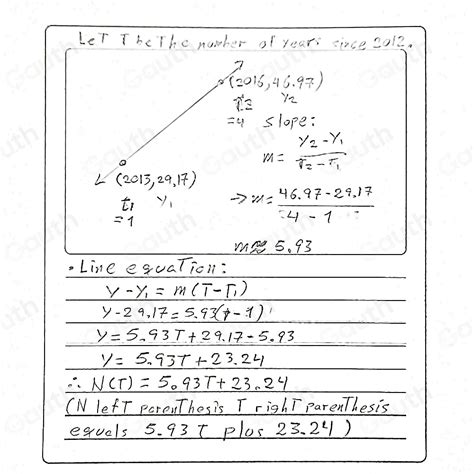 LeT T be The number of years since 2012.
(2016,46.97)
T2 Y2
=4 slope:
m= Y2-Y1 / T2-T1
(2013,29.17)
t1 Y1
=1
→ m= 46.97-29.17 / 4-1
m≈ 5.93
• Line equaTion:
Y-Y1 = m(T-T1)
Y-29.17=5.93(t-1)
Y=5.93T+29.17-5.93
Y= 5.93T+23.24
∴ N(T) = 5.93T+23.24
(N lefT parenThesis T righT parenThesis
equals 5.93 T plus 23.24)
Gauth